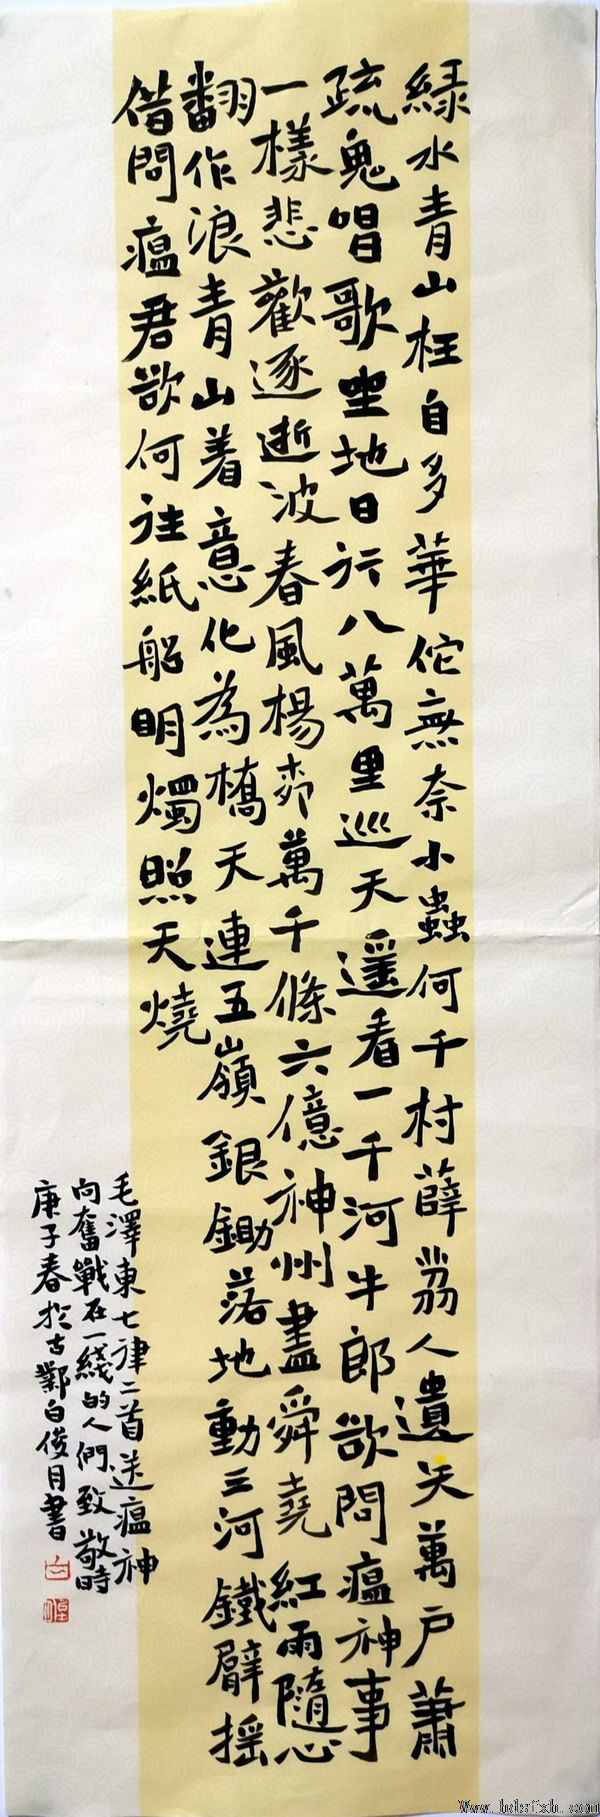 綠水青山枉自多華佗無奈小蟲何千村薜荔人遺矢萬戶蕭
疏鬼唱歌坐地日行八萬里巡天遥看一千河牛郎欲問瘟神事
一樣悲歡逐逝波春風楊柳萬千條六億神州盡舜堯紅雨隨心
翻作浪青山着意化為橋天連五嶺銀鋤落地動三河鐵臂摇
借問瘟君欲何往紙船明燭照天燒
毛澤東七律二首送瘟神
向奮戰在一綫的人們致敬時
庚子春於古鄴白俊月書
白
Www.hdsfxh.com